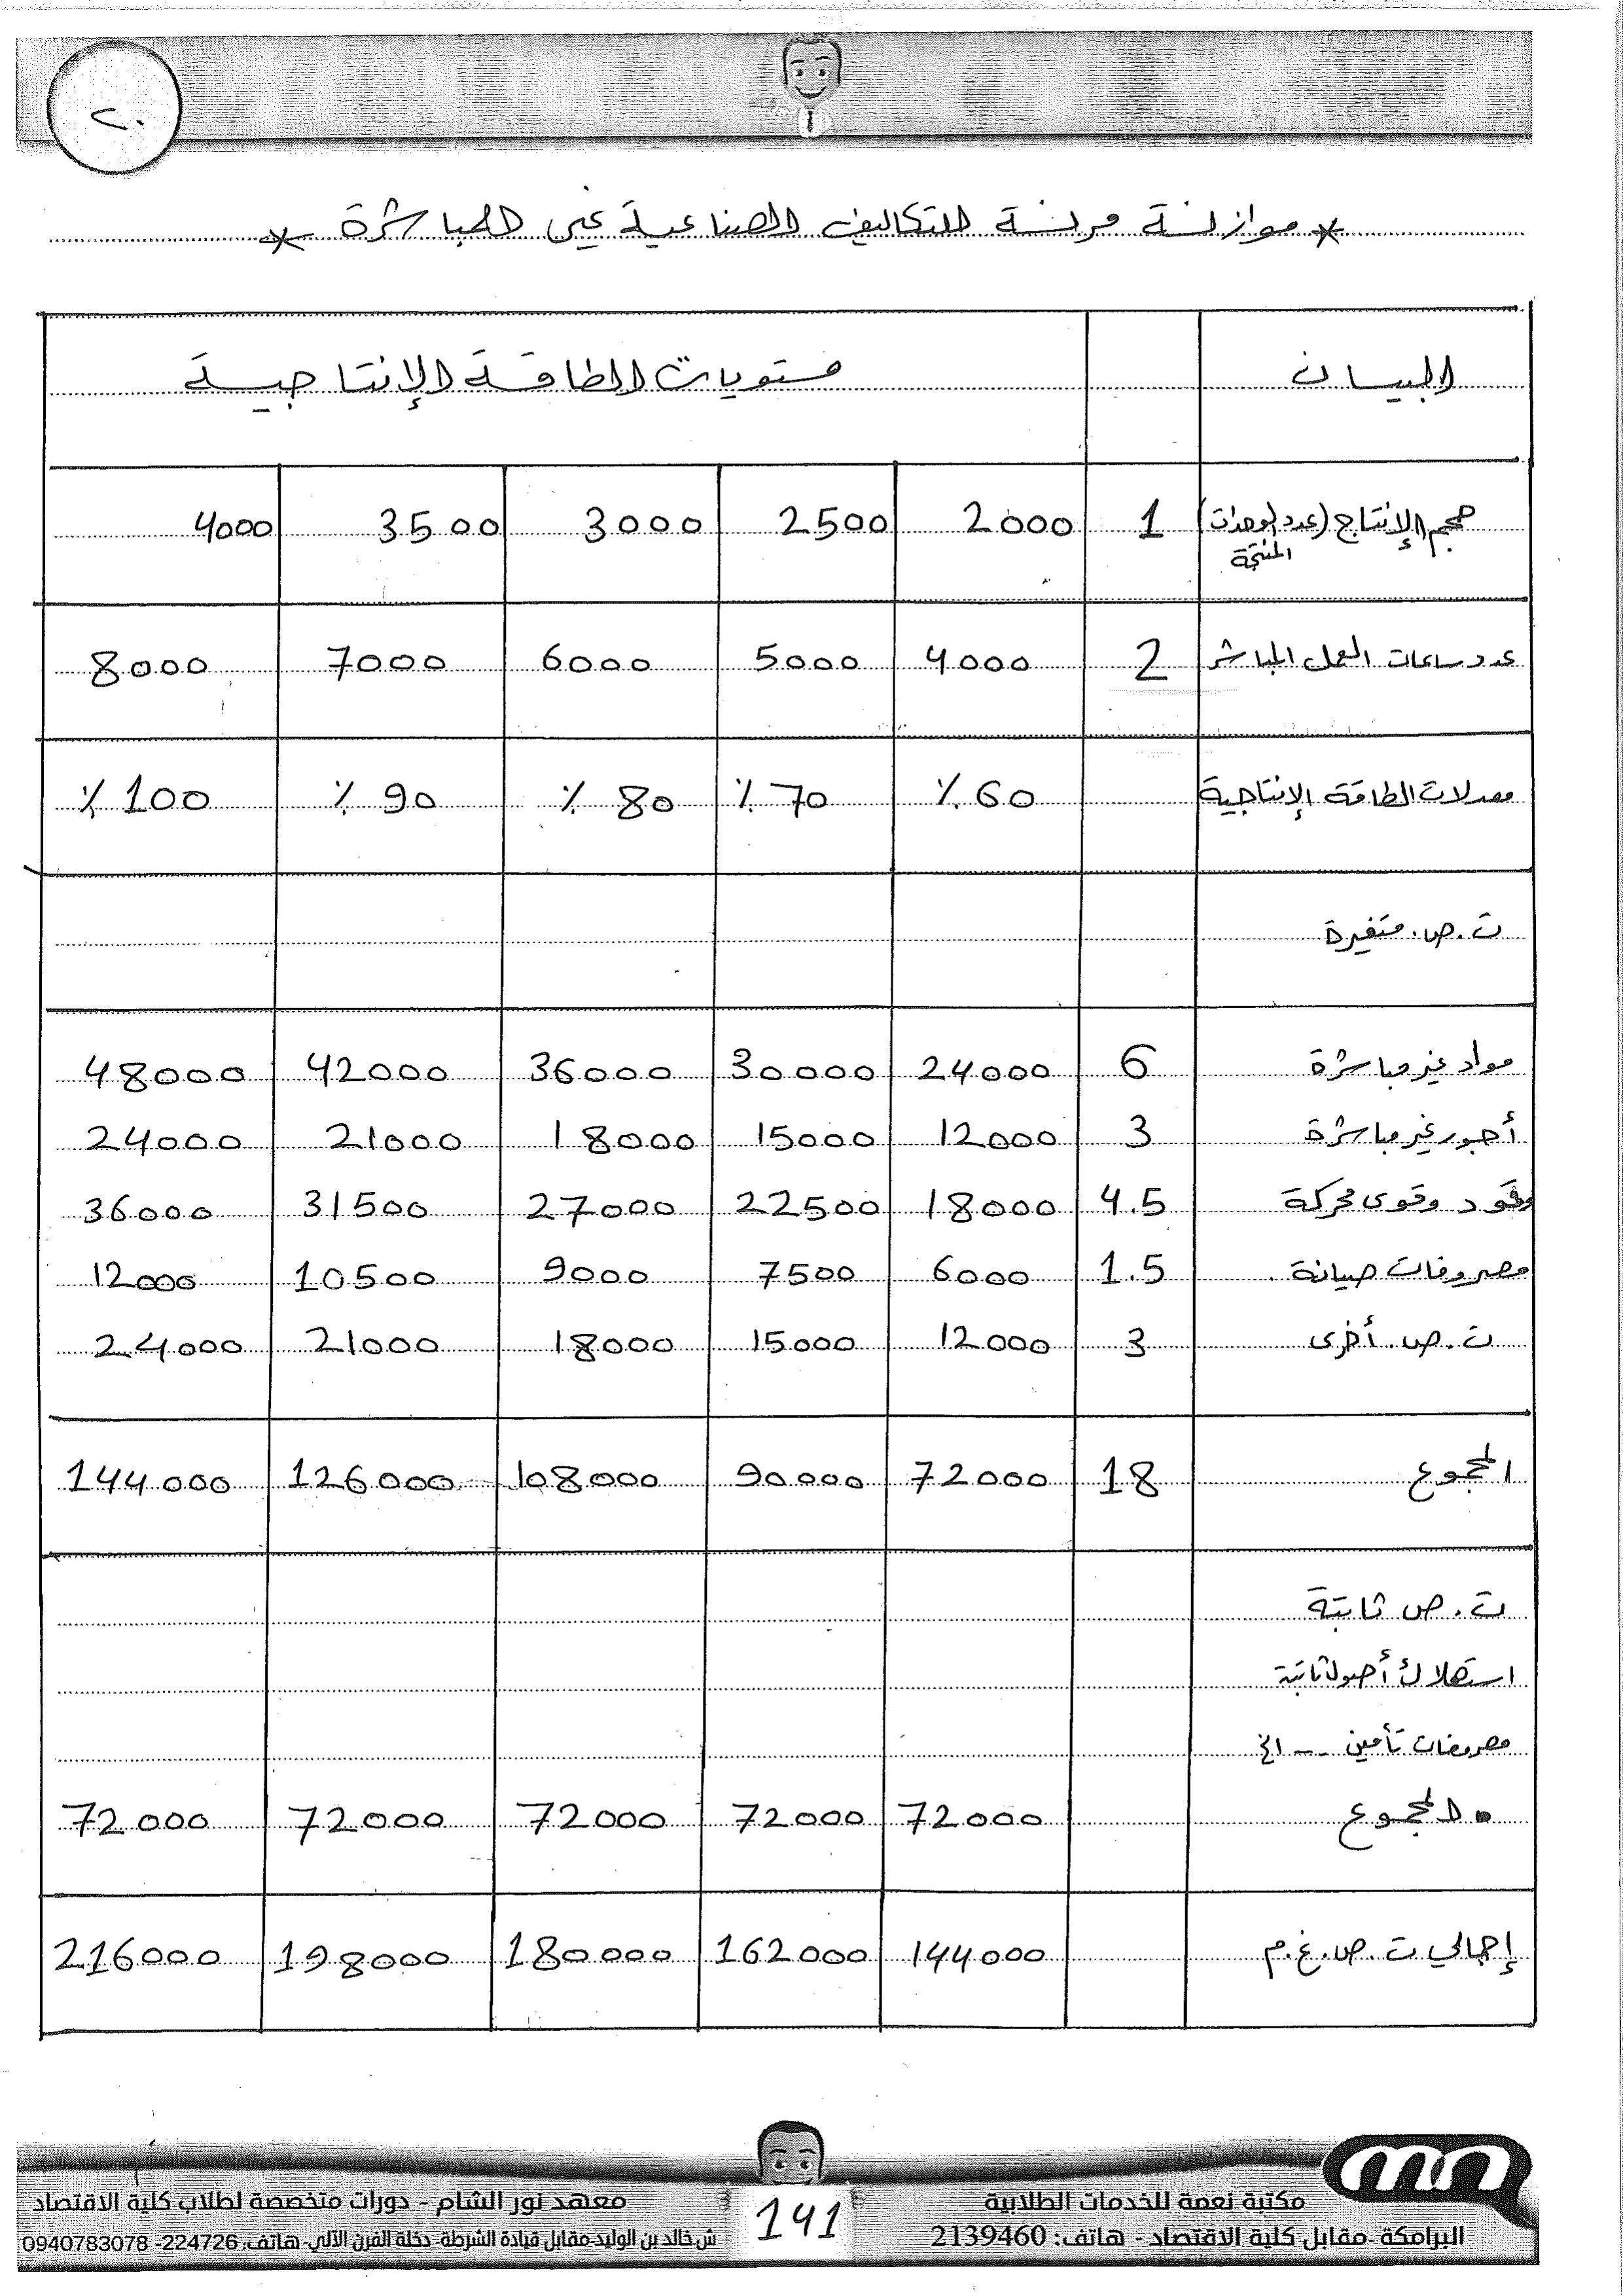 ٢٠
* موازنة مرنة للتكاليف الصناعية غير المباشرة *
البيان مستويات الطاقة الإنتاجية
حجم الإنتاج (عدد الوحدات المنتجة) 1 2000 2500 3000 3500 4000
عدد ساعات العمل المباشر 2 4000 5000 6000 7000 8000
معدلات الطاقة الإنتاجية 60 ٪ 70 ٪ 80 ٪ 90 ٪ 100 ٪
ت . ص . متغيرة
مواد غير مباشرة 6 24000 30000 36000 42000 48000
أجور غير مباشرة 3 12000 15000 18000 21000 24000
وقود وقوى محركة 4.5 18000 22500 27000 31500 36000
مصروفات صيانة . 1.5 6000 7500 9000 10500 12000
ت . ص . أخرى 3 12000 15000 18000 21000 24000
المجموع 18 72000 90000 108000 126000 144000
ت . ص ثابتة
استهلاك أصول ثابتة
مصروفات تأمين -- الخ
• المجموع 72000 72000 72000 72000 72000
إجمالي ت . ص . غ . م 144000 162000 180000 198000 216000
مكتبة نعمة للخدمات الطلابية
البرامكة -مقابل كلية الاقتصاد - هاتف: 2139460
141
معهد نور الشام - دورات متخصصة لطلاب كلية الاقتصاد
ش خالد بن الوليد-مقابل قيادة الشرطة- دخلة الفرن الآلي- هاتف: 224726- 0940783078